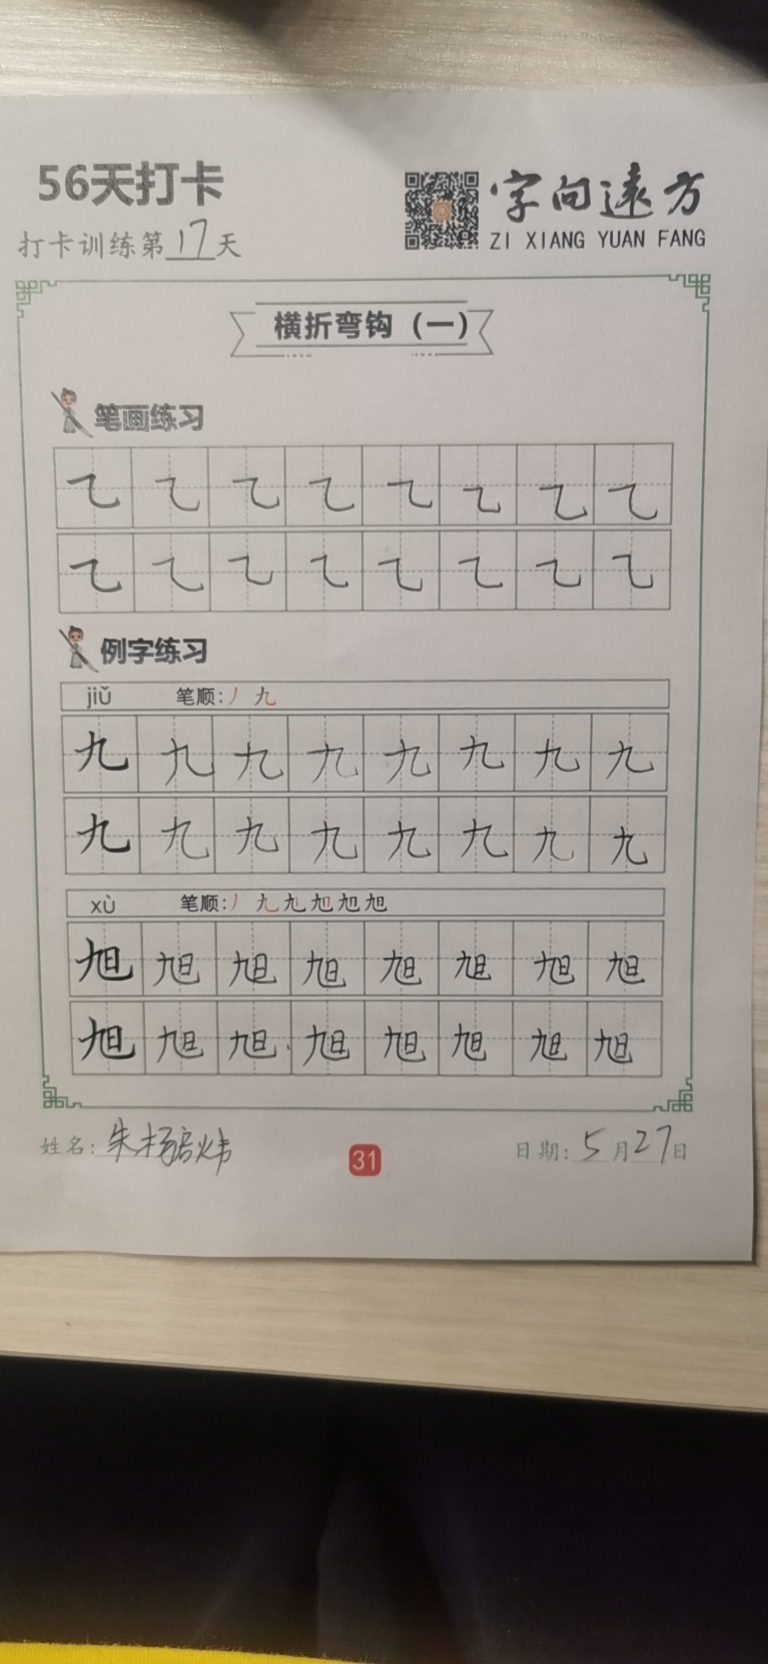 56天打卡
字向遠方
ZI XIANG YUAN FANG
打卡训练第17天
横折弯钩（一）
笔画练习
乙 乙 乙 乙 乙 乙 乙 乙
乙 乙 乙 乙 乙 乙 乙 乙
例字练习
jiǔ 笔顺:丿 九
九 九 九 九 九 九 九 九
九 九 九 九 九 九 九 九
xù 笔顺:丿 九 旭 旭 旭 旭
旭 旭 旭 旭 旭 旭 旭 旭
旭 旭 旭 旭 旭 旭 旭 旭
姓名: 朱杨
31
日期: 5月27日